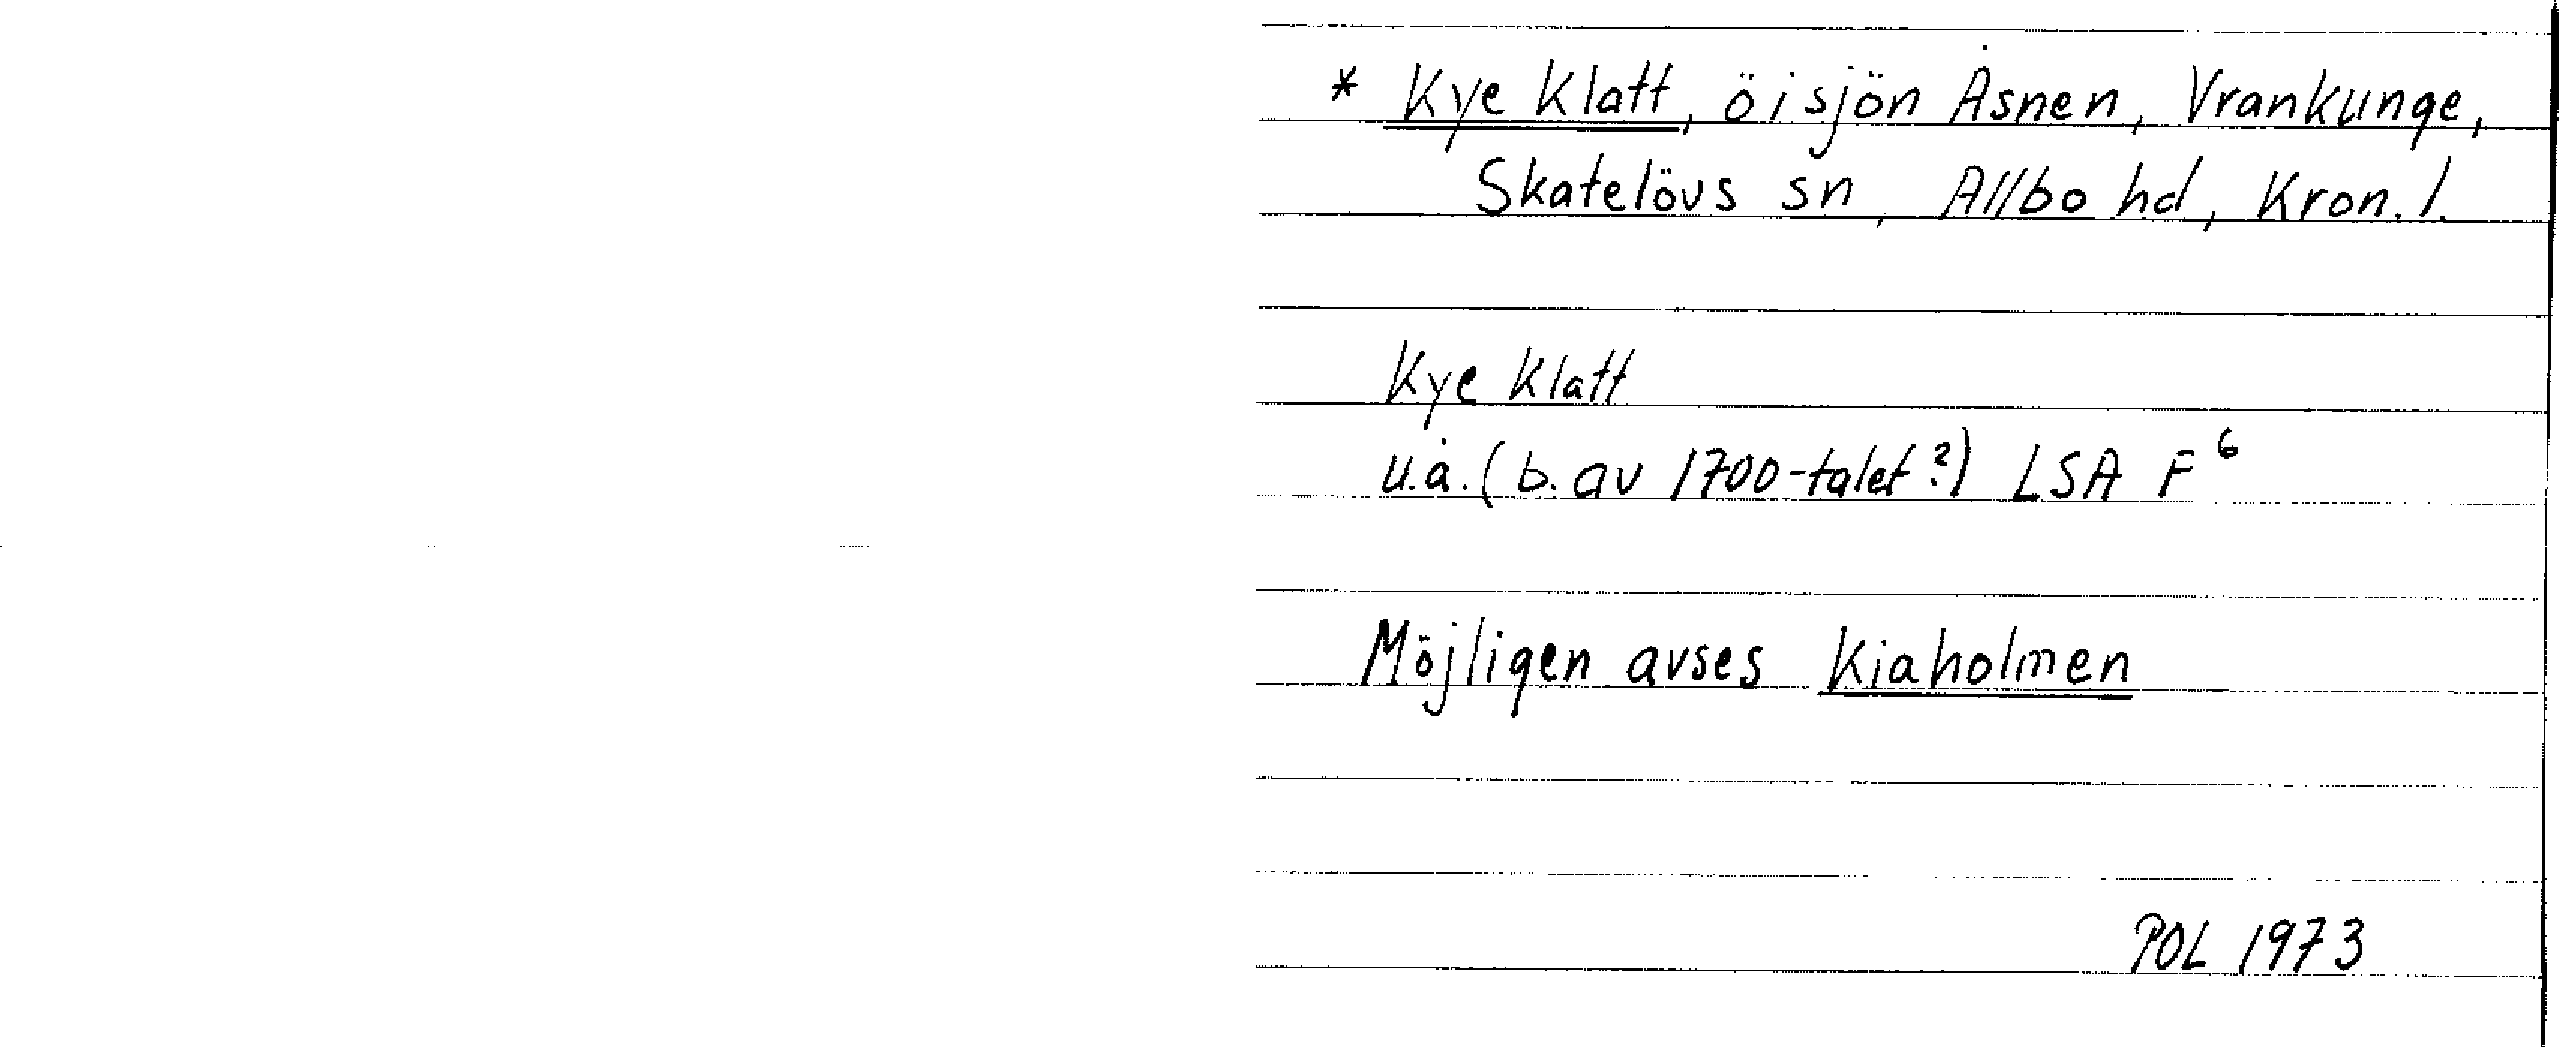 * Kye Klatt, ö i sjön Åsnen, Vrankunge,
Skatelövs sn, Allbo hd, Kron. l.
Kye Klatt
u.å. (b. av 1700-talet?) LSA F⁶
Möjligen avses Kiaholmen
POL 1973